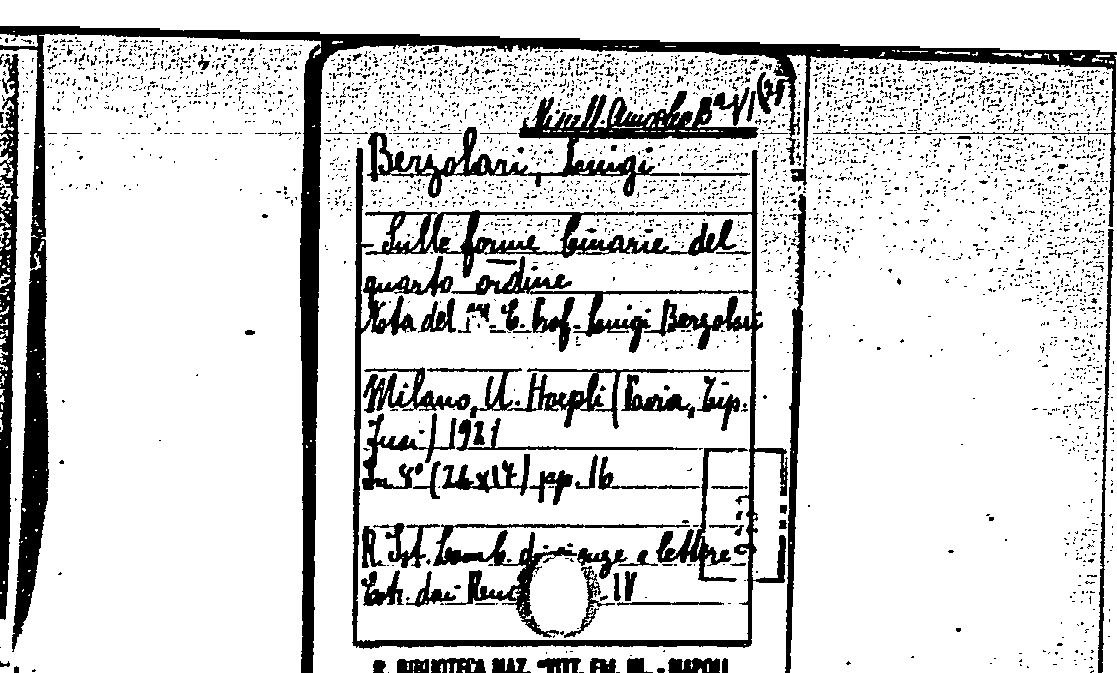 Berzolari, Luigi
- Sulle forme binarie del
quarto ordine
Nota del M. E. Prof. Luigi Berzolari
Milano, U. Hoepli (Pavia, Tip.
Fusi) 1921
In 8° (24x17) pp. 16
R. Ist. Lomb. di scienze e lettere
Estr. dai Rend IV
R. BIBLIOTECA NAZ. "VITT. EM. III. - NAPOLI